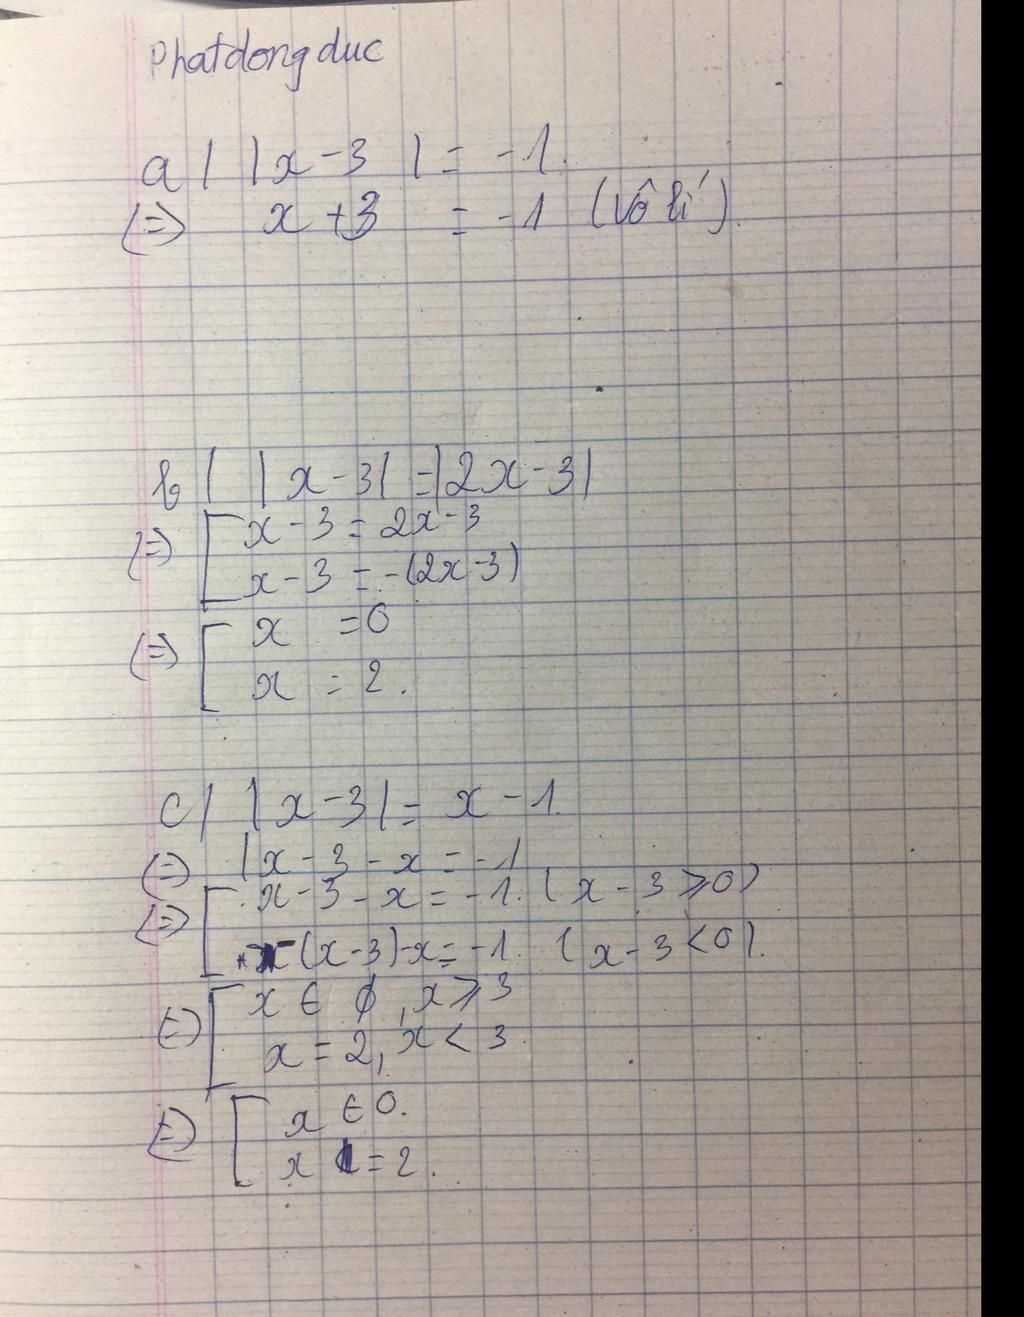 Phatdongduc
a| |x-3| = -1.
(=) x+3 = -1 (Vô lí).
b| |x-3| = |2x-3|
(=) [ x-3 = 2x-3
x-3 = -(2x-3)
(=) [ x = 0
x = 2.
c| |x-3| = x-1.
(=) |x-3-x = -1
(=) [ x-3-x = -1. (x-3 ⩾ 0)
-(x-3)-x = -1. (x-3 < 0).
(=) [ x ∈ ∅, x ⩾ 3
x = 2, x < 3
(=) [ x ∈ 0.
x = 2.